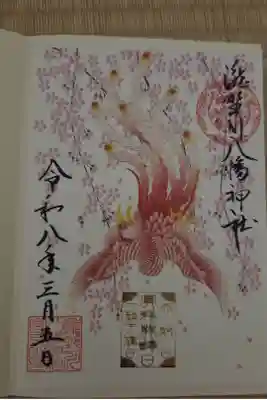 滝野川八幡神社
令和八年三月五日